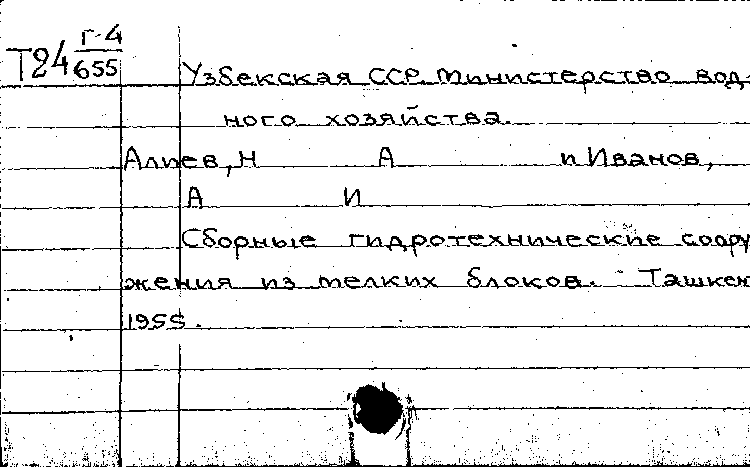 Т24 Г-4
655
Узбекская ССР. Министерство вод-
ного хозяйства.
Алиев, Н А и Иванов,
А И
Сборные гидротехнические соору
жения из мелких блоков. - Ташкен
1955.